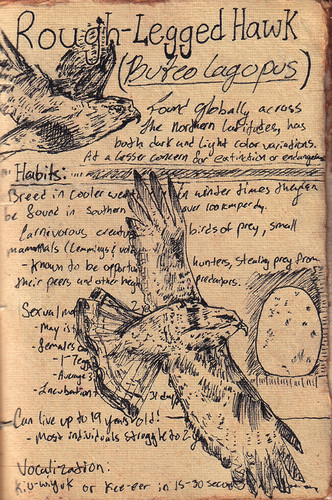 Rough-Legged Hawk
(Buteo lagopus)
Found globally across
the Northern latitudes, has
both dark and light color variations.
At a lesser concern for extinction or
Habits:
Breed in cooler in winter times they can
be found in Southern over 100km per day.
Carnivorous birds of prey, small
mammals (Lemmings &
- Known to be hunters, stealing prey from
their peers and other predators.
Sexual
- May
- females
- 1
- Average 3
- Incubation 31 days
- Can live up to 19 years old!
- Most individuals struggle to 2
Vocalization:
or Kee-eer in 15-30 seconds